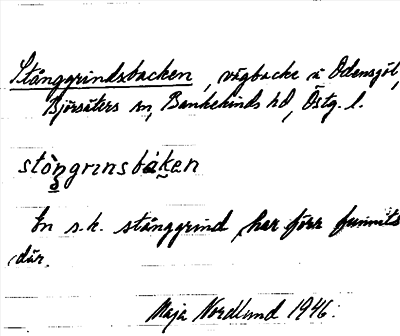 Stånggrindsbacken, vägbacke i Odensgöl,
Björsäters sn, Bankekinds hd, Östg. l.
stòŋgrinsbàken
En s.k. stånggrind har förr funnits
där.
Maja Nordlund 1946.